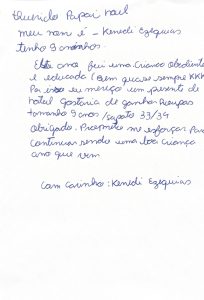 Querido Papai noel
meu nome é - Kenedi Ezequias
tenho 9 aninhos.
Este ano fui uma criança obediente
e educada (Bem quase sempre KKK
Por isso eu mereço um presente de
natal gostaria de ganhar Roupas
tamanho 9 anos / sapato 33/34
Obrigado. Prometo me esforçar Para
continuar sendo uma boa criança
ano que vem
Com carinho: Kenedi Ezequias